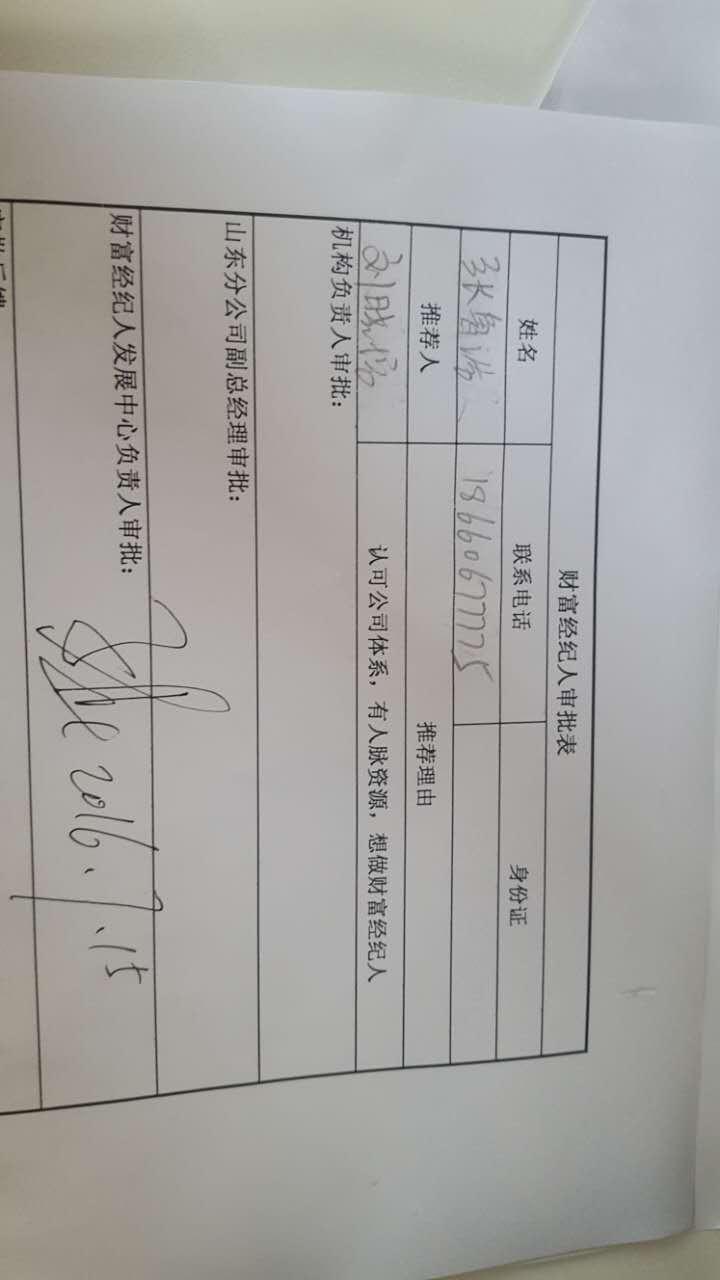 财富经纪人审批表
姓名 联系电话 身份证
张鲁浩 18660677775
推荐人 推荐理由
刘晓 认可公司体系，有人脉资源，想做财富经纪人
机构负责人审批：
山东分公司副总经理审批：
财富经纪人发展中心负责人审批：
2016.7.15